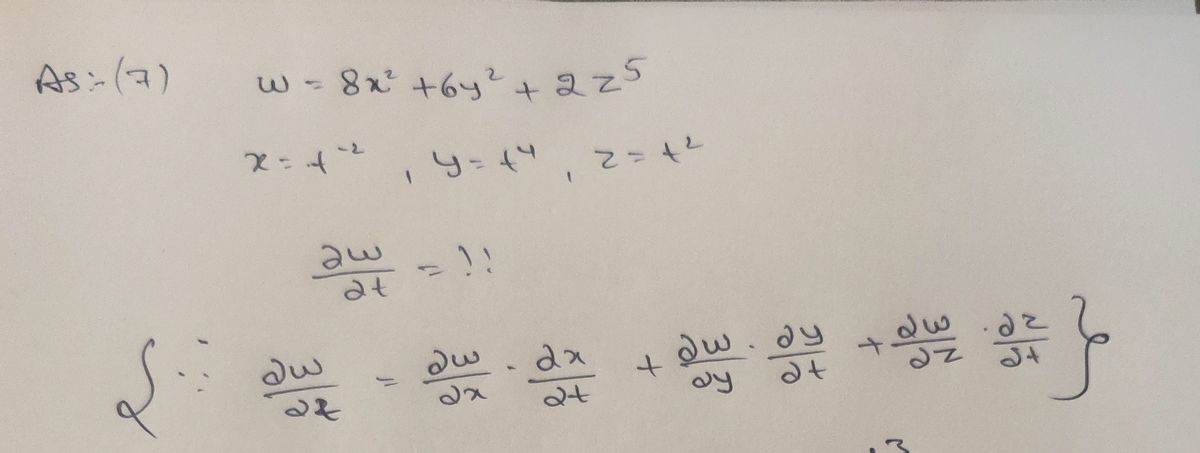 As:-(7) w = 8x² + 6y² + 2z⁵
x = t⁻², y = t⁴, z = t²
∂w/∂t = !!
{∵ ∂w/∂t = ∂w/∂x · ∂x/∂t + ∂w/∂y · ∂y/∂t + ∂w/∂z · ∂z/∂t}